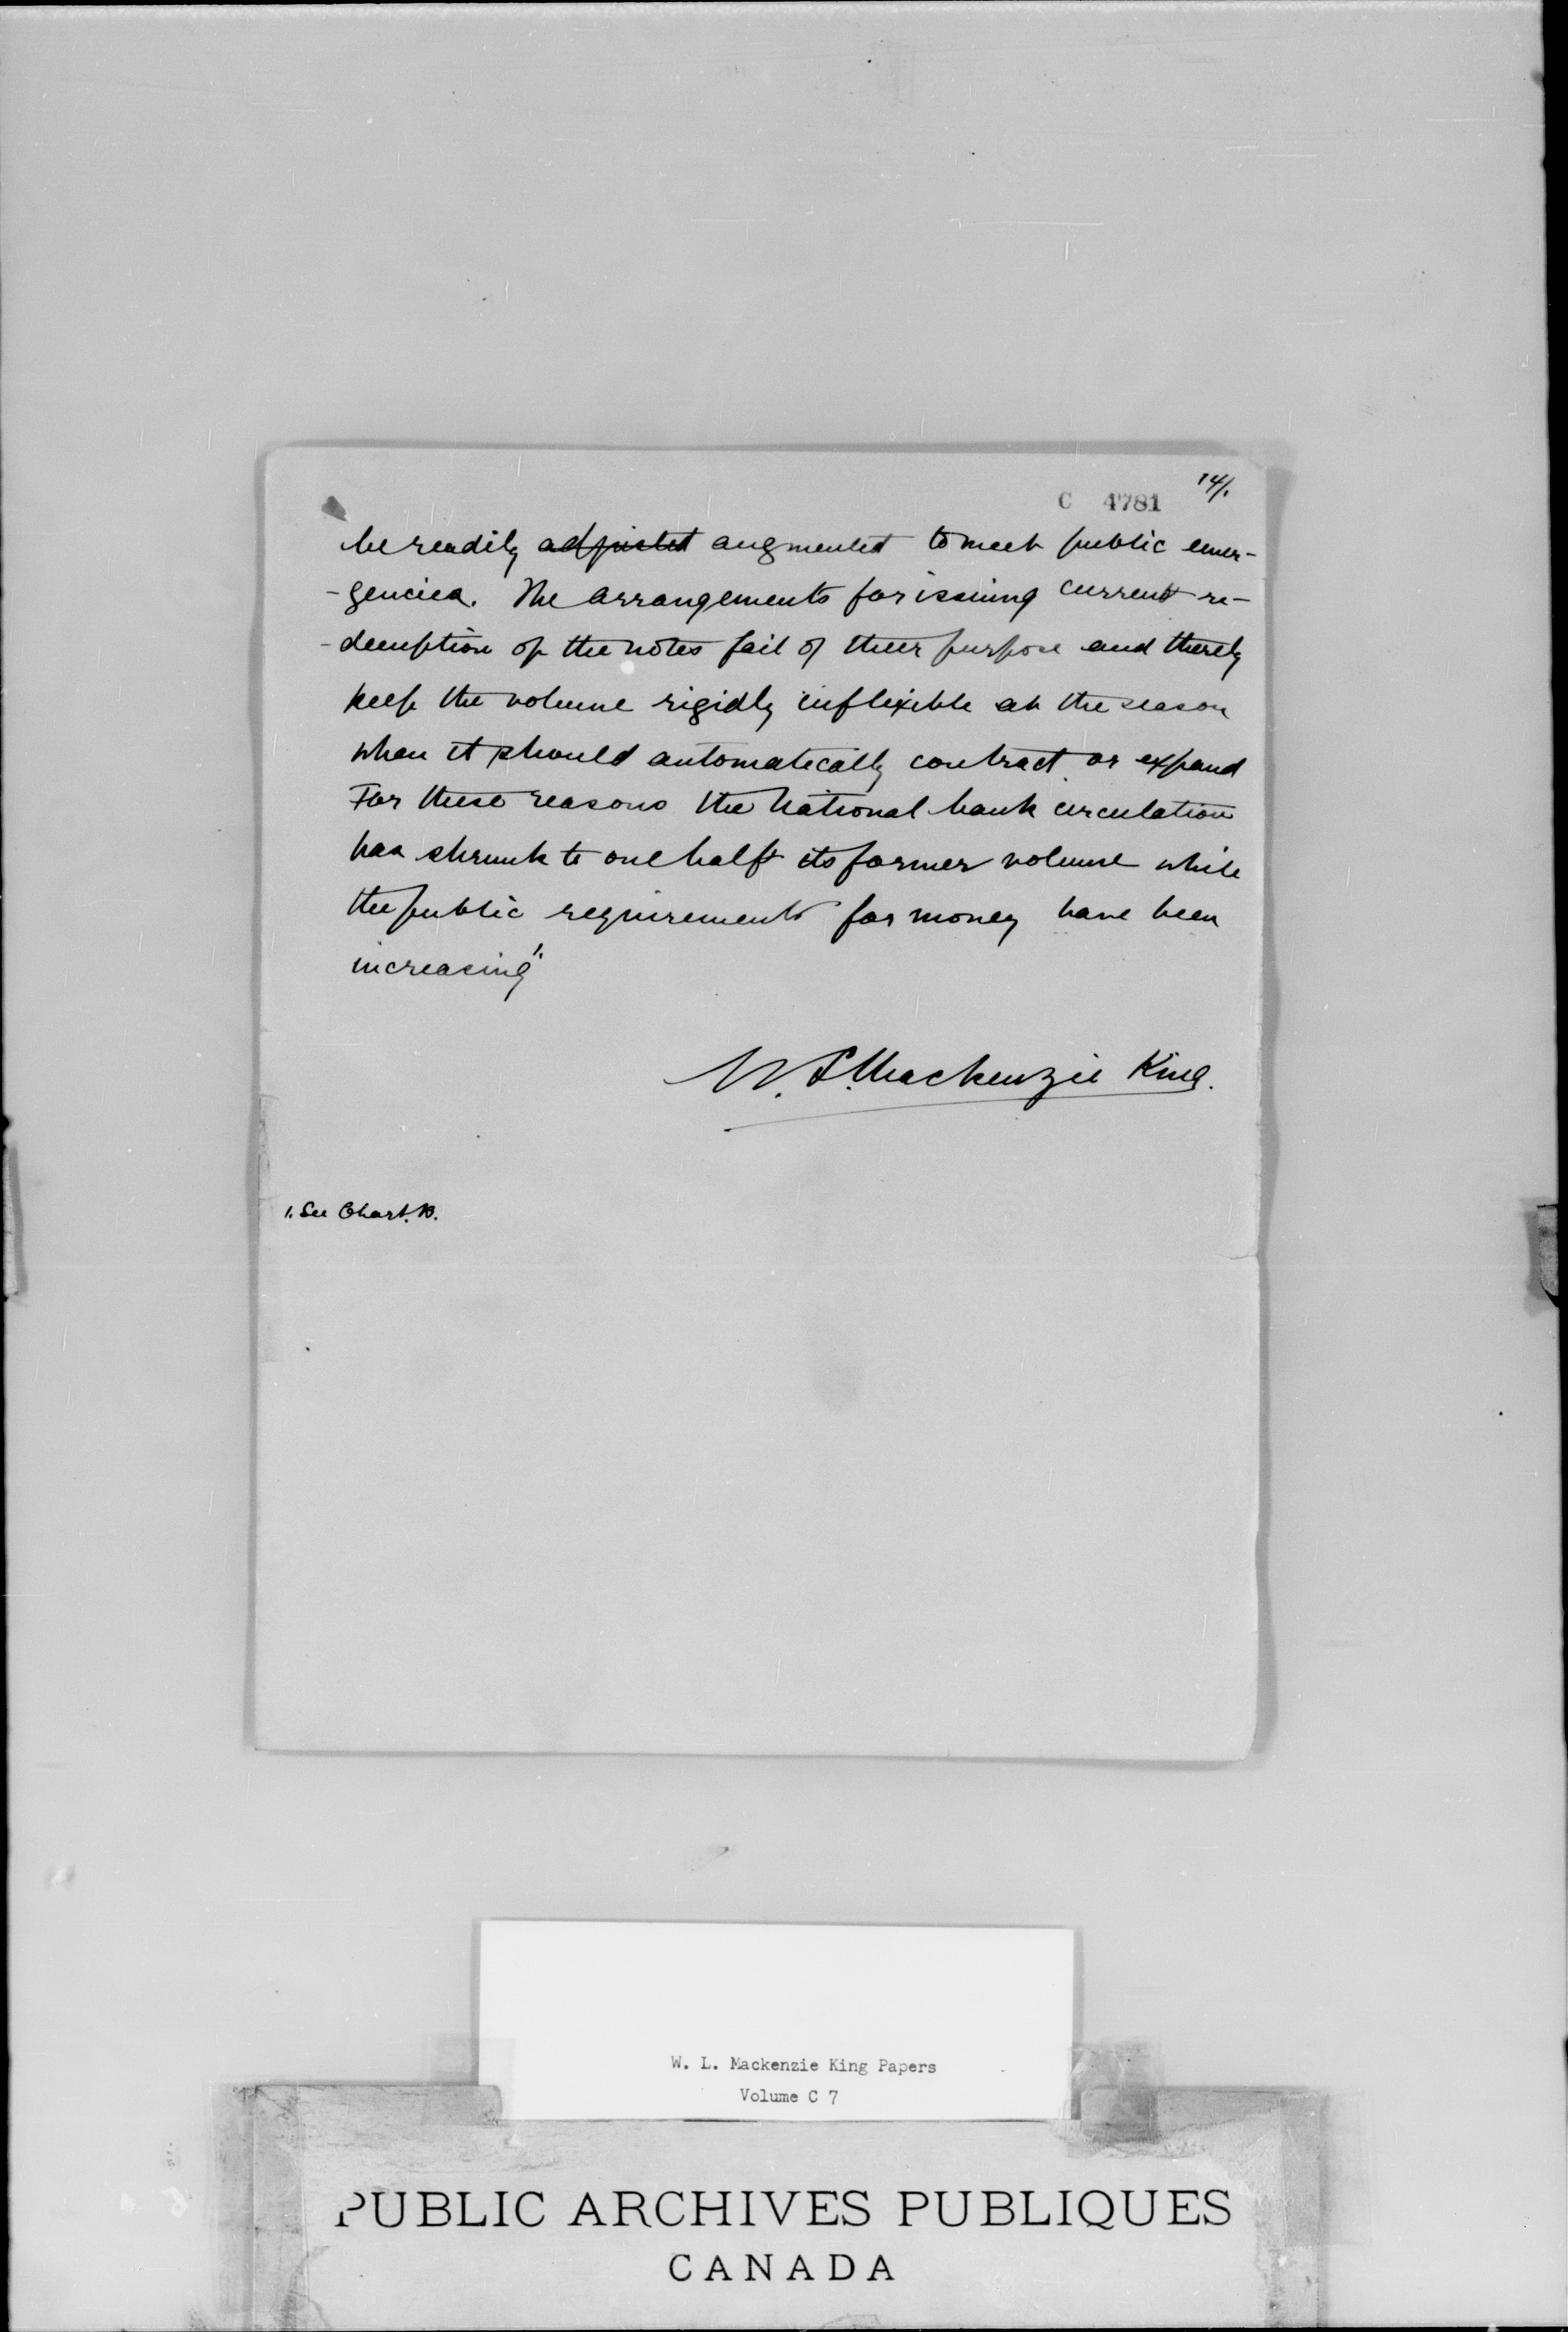 C 4781 14/.
be readily adjusted augmented to meet public emer-
-gencies. The arrangements for issuing current re-
-demption of the notes fail of their purpose and thereby
keep the volume rigidly inflexible at the season
when it should automatically contract or expand
For these reasons the National bank circulation
has shrunk to one half its former volume while
the public requirements for money have been
increasing"
W. L. Mackenzie King.
1. See Chart. B.
W. L. Mackenzie King Papers
Volume C 7
PUBLIC ARCHIVES PUBLIQUES
CANADA